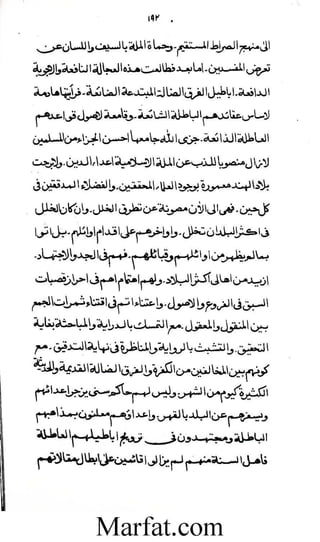 ١٩٢
الى منهج الصراط المستقيم. وحماة الملة بالسيف واللسان عن
تعرض المفسدين. اما بعد فطالعت هذه العجالة النافعة والاجوبة
الدافعة. اباطيل الفرق الضالة المبتدعة الضائعة. فرأيتها هادمة
لاساس عقائدهم الباطلة الشائعة. وقامعة لاصول قواعدهم
العاطلة الذائعة. جزى الله جامعها احسن الجزاء من المسلمين
لا زال منصوبا للذب عن الملة الاسلامية اعداء الدين. ولا برحت
بلاد الهند معمورة بوجود العلماء المحققين. والفضلاء المدققين فى
كل حين. فهى الى الآن مصونة عن تطرق الخلل. وان كان الخلل
فى اكثر البلدان تخلل. واواخرهم على اقدام اوائلهم. بل اتوا
بما لم يظهر من اوائلهم وقبائلهم. فهم فى الجد والاجتهاد.
ازيد من اهالى اكثر البلاد. ولهم اهتمام اهم فى احراز قصبات
السبق فى الفروع والاصول. واعتناء اتم فى اقتناء ثمرات الجمع
بين المنقول والمعقول. مع التمسك بالدراية والمباحثة بغاية
التحقيق. والتشبث بالرواية والمناظرة فى نهاية التدقيق. مع
كونهم بين المخالفين من الكفرة والفرق الضالة القديمة والحديثة
الكثيرة كيوم من الشهر. وليس لهم حاكم سنى يزجر اعدائهم
ويدفعهم عن البلد بالقهر. واعداؤهم معلنون بمذاهبهم
الباطلة ومجتهدون فى ترويج اباطيلهم العاطلة
فاهل السنة منهم لم يزالوا قائمين على ابطال مقالاتهم
Marfat.com